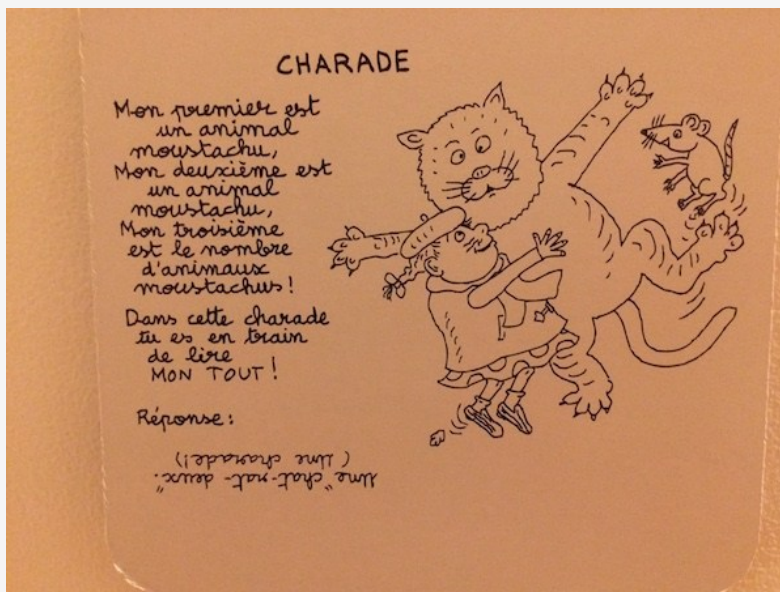 CHARADE
Mon premier est
un animal
moustachu,
Mon deuxième est
un animal
moustachu,
Mon troisième
est le nombre
d'animaux
moustachus!
Dans cette charade
tu es en train
de lire
MON TOUT!
Réponse:
Une "chat-rat-deux".
(une charade!)